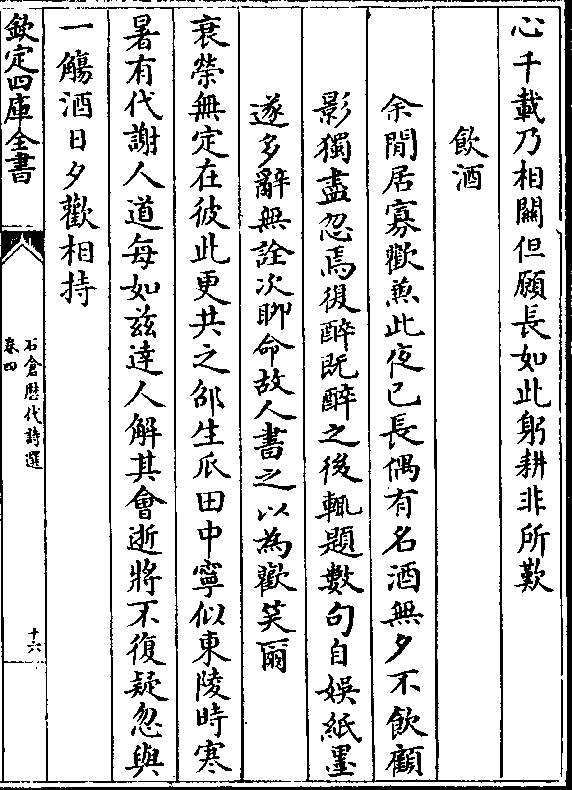 心千載乃相關但願長如此躬耕非所歎
飲酒
余閒居寡歡兼此夜已長偶有名酒無夕不飲顧
影獨盡忽焉復醉既醉之後輒題數句自娛紙墨
遂多辭無詮次聊命故人書之以為歡笑爾
衰榮無定在彼此更共之邵生瓜田中寧似東陵時寒
暑有代謝人道每如茲達人解其會逝將不復疑忽與
一觴酒日夕歡相持
欽定四庫全書
石倉歷代詩選
卷四
十六